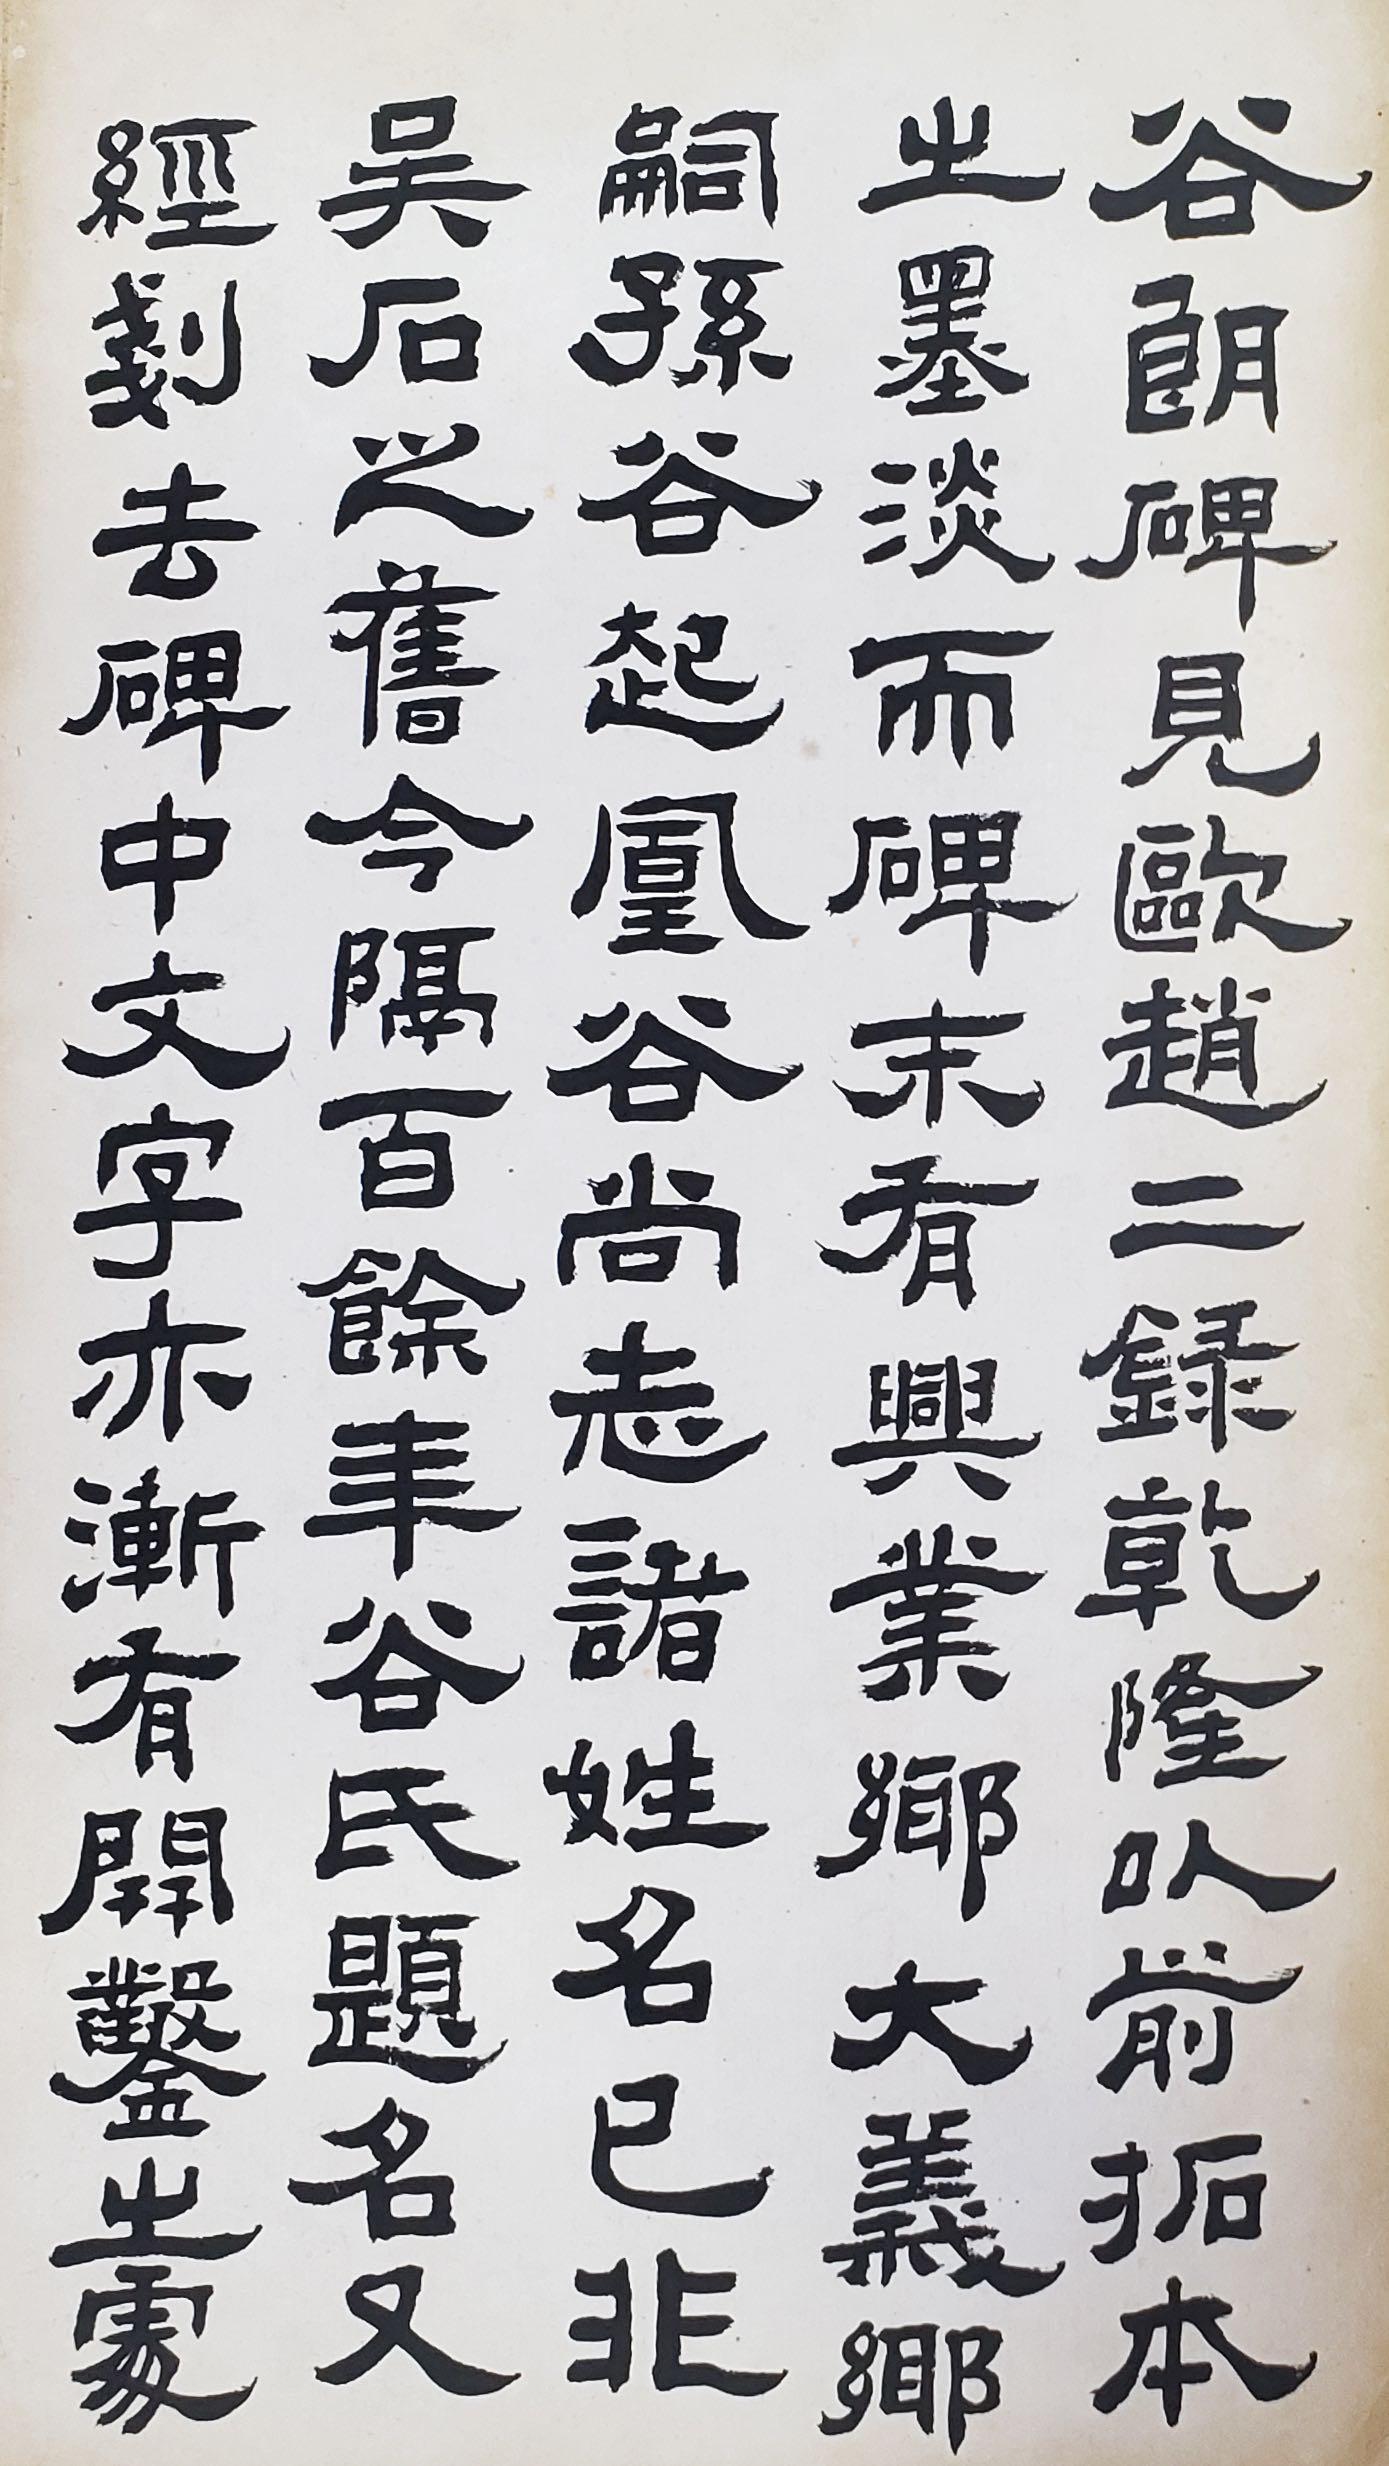 谷朗碑見歐趙二録乾隆以前拓本
之墨淡而碑末有興業鄉大義鄉
嗣孫谷起凰谷尚志諸姓名已非
吴石之舊今隔百餘年谷氏題名又
經剗去碑中文字亦漸有開鑿之處